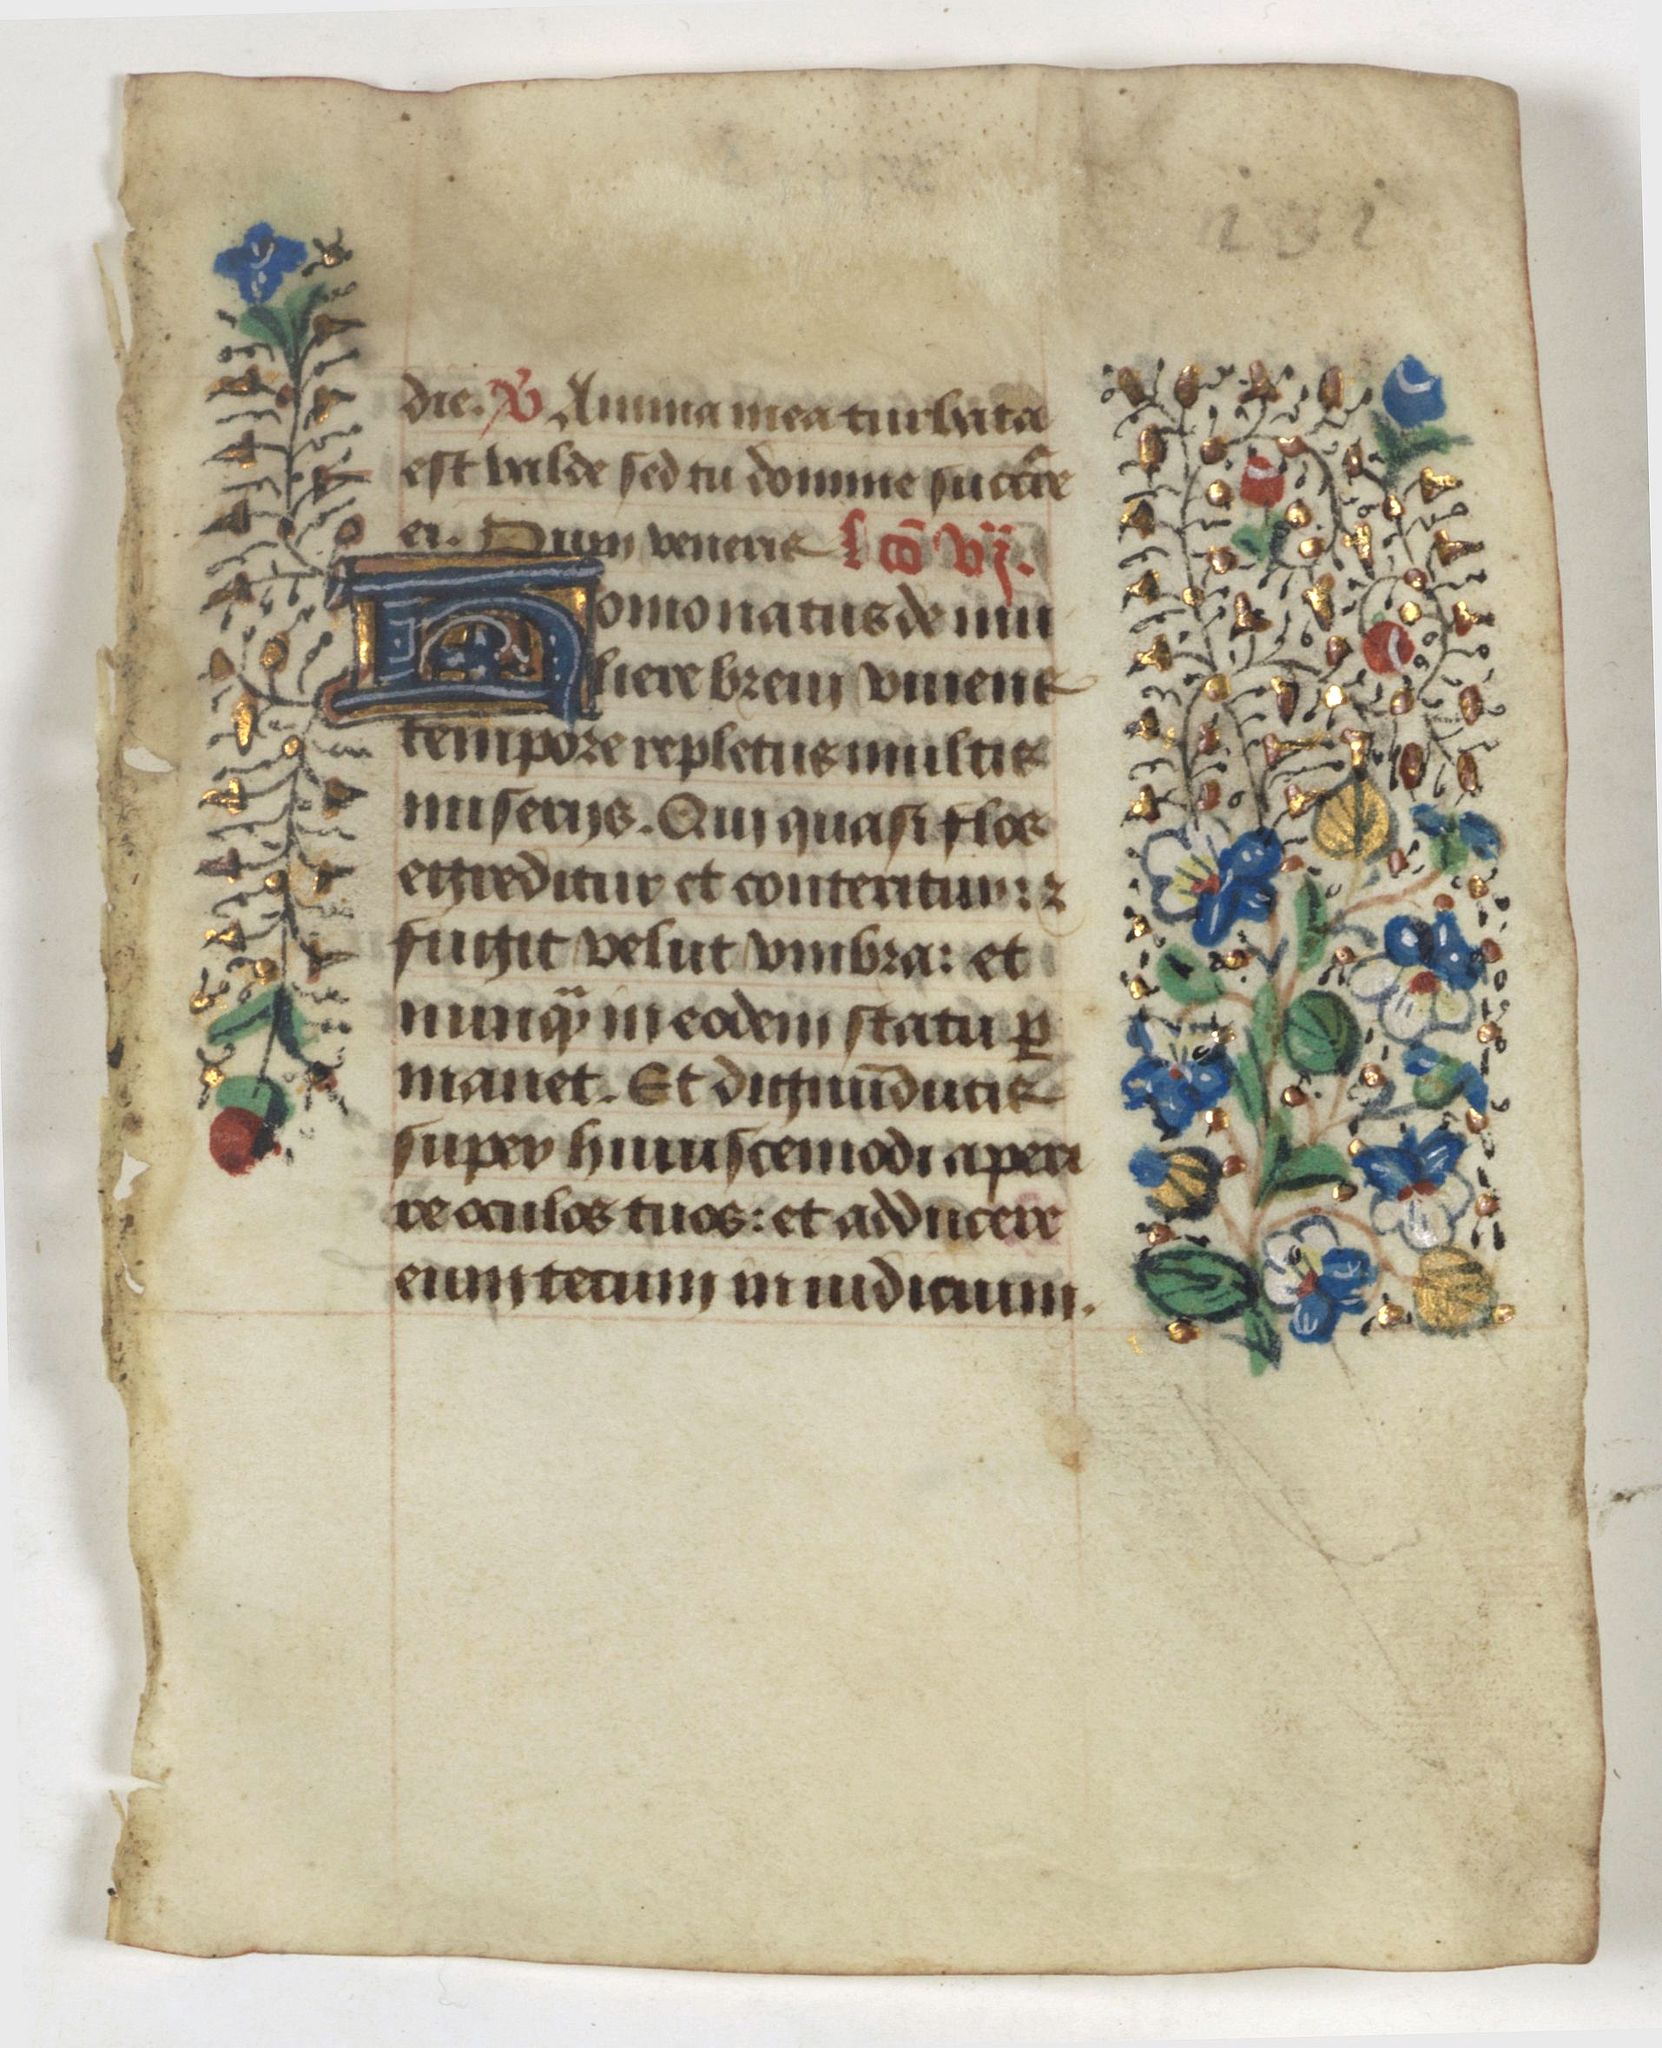 232
die. ℣ Anima mea turbata
est valde sed tu domine succꝛ̄e
ei. Dum veneris Lcō vij.
Homo natus de mu
liere breui viuens
tempore repletus multis
miserijs. Qui quasi flos
egreditur et conteritur: ⁊
fugit velut vmbra: et
nunqᷓ in eodem statu ꝑ
manet. Et dignū ducis
super huiuscemodi aperi
re oculos tuos: et adducere
eum tecum in iudicium.